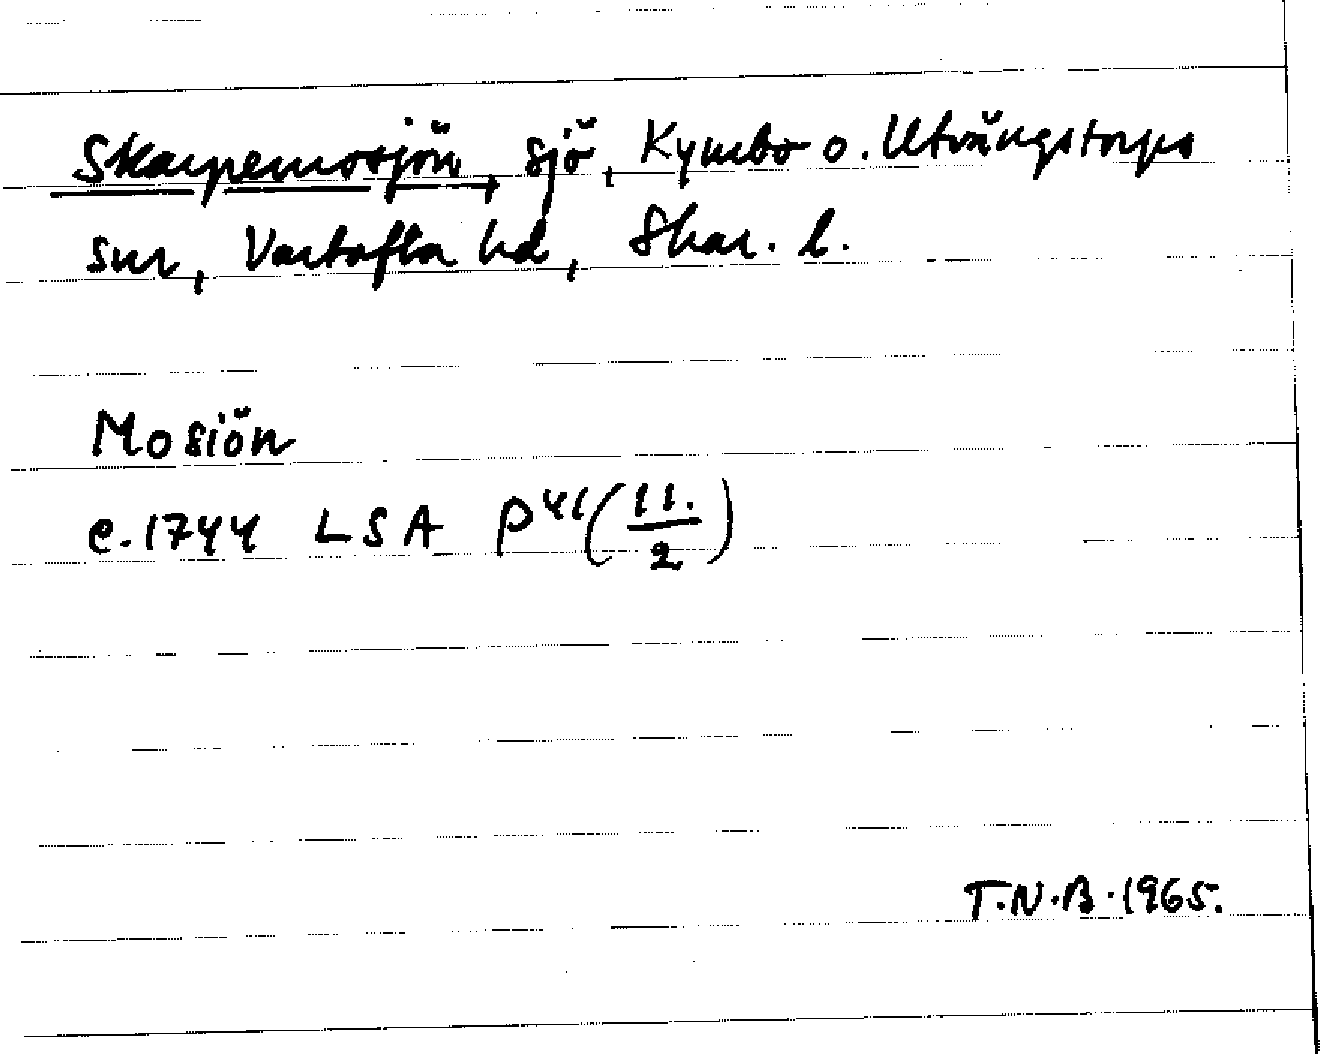 Skarpemosjön, sjö, Kymbo o. Utvängstorps
snr, Vartofta hd, Skar. l.
Mosiön
c. 1744 LSA P 41 (11./2)
T.N.B. 1965.